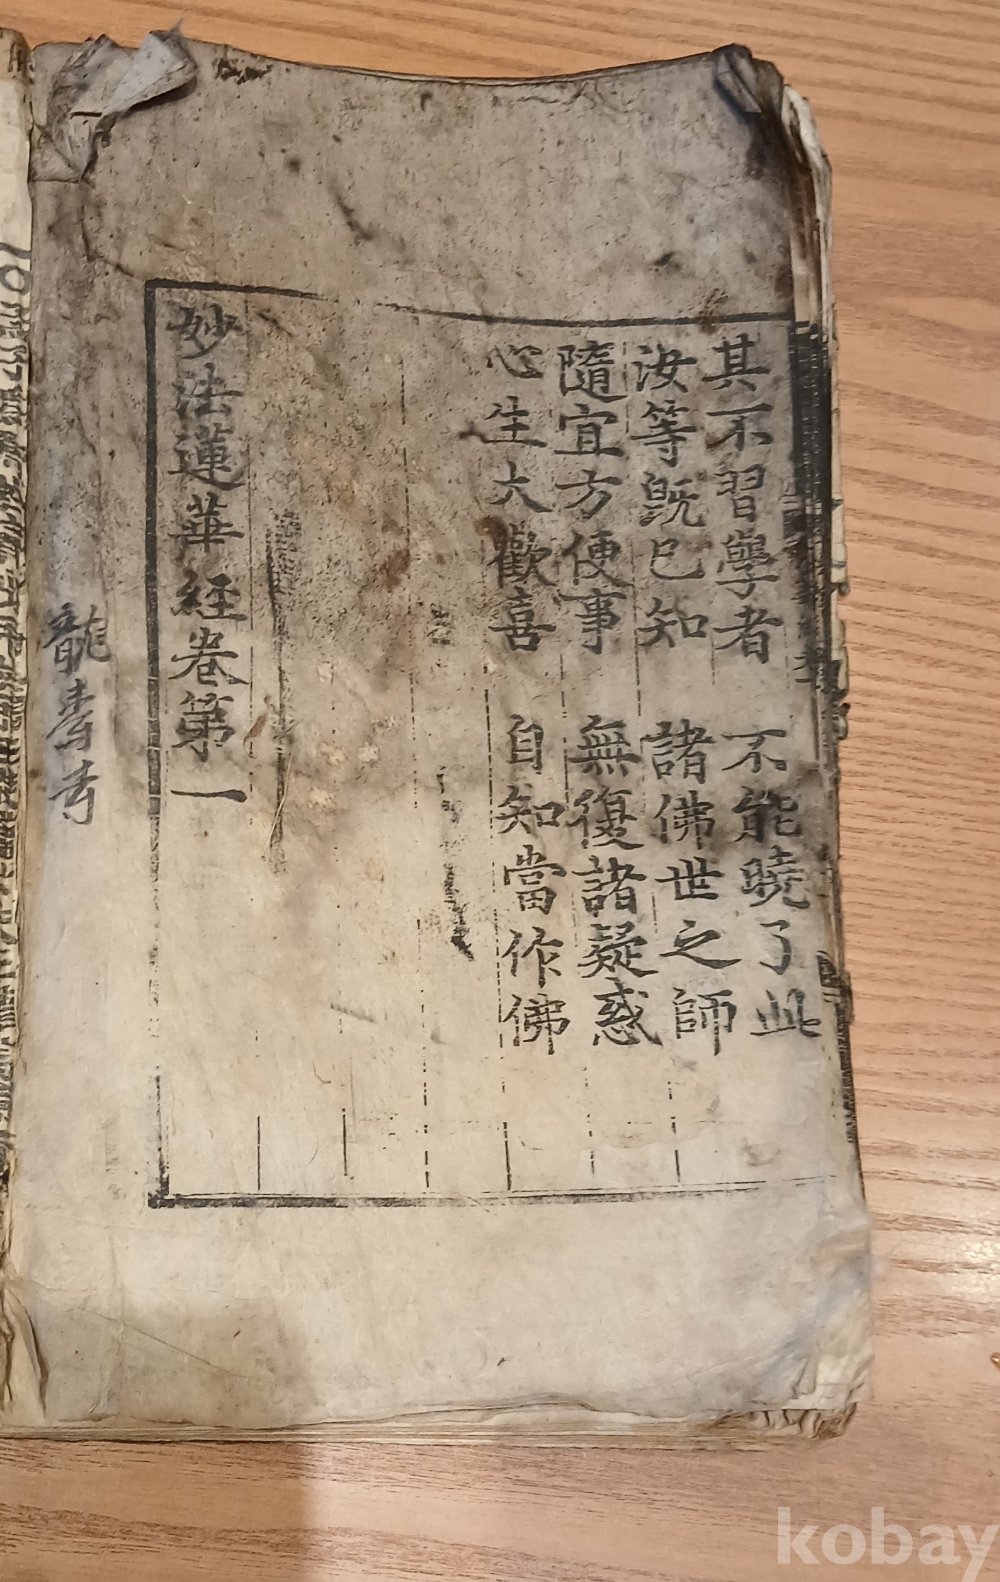 其不習學者 不能曉了此
汝等旣已知 諸佛世之師
隨宜方便事 無復諸疑惑
心生大歡喜 自知當作佛
妙法蓮華經卷第一
kobay